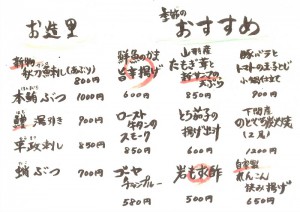 お造里
新物
秋刀魚刺し(あぶり)
800円
本鮪ぶつ 1000円
鱧湯引き 900円
平政刺し 850円
蛸ぶつ 700円
季節の
おすすめ
鮮魚のかま
旨辛揚げ
600円
ロースト
牛タンの
スモーク
850円
ゴーヤ
チャンプルー
580円
山形産
たもぎ茸と
850円
とろ茄子の
揚げ出し
600円
岩もずく酢
500円
豚バラと
トマトのまるとじ
小鍋仕立て
900円
下関産
のどぐろ炭火焼
(2尾)
1200円
自家製
れんこん
挟み揚げ
650円